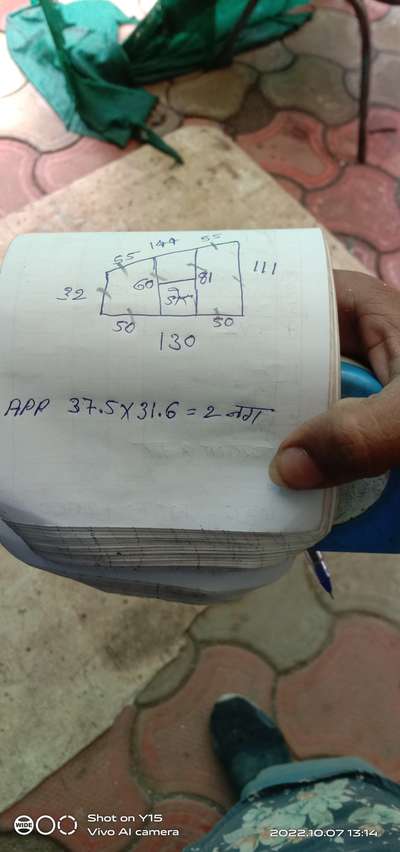 144
65 55
32 60 81 111
50 50
130
APP 37.5 X 31.6 = 2 नग
WIDE
Shot on Y15
Vivo AI camera
2022.10.07 13:14